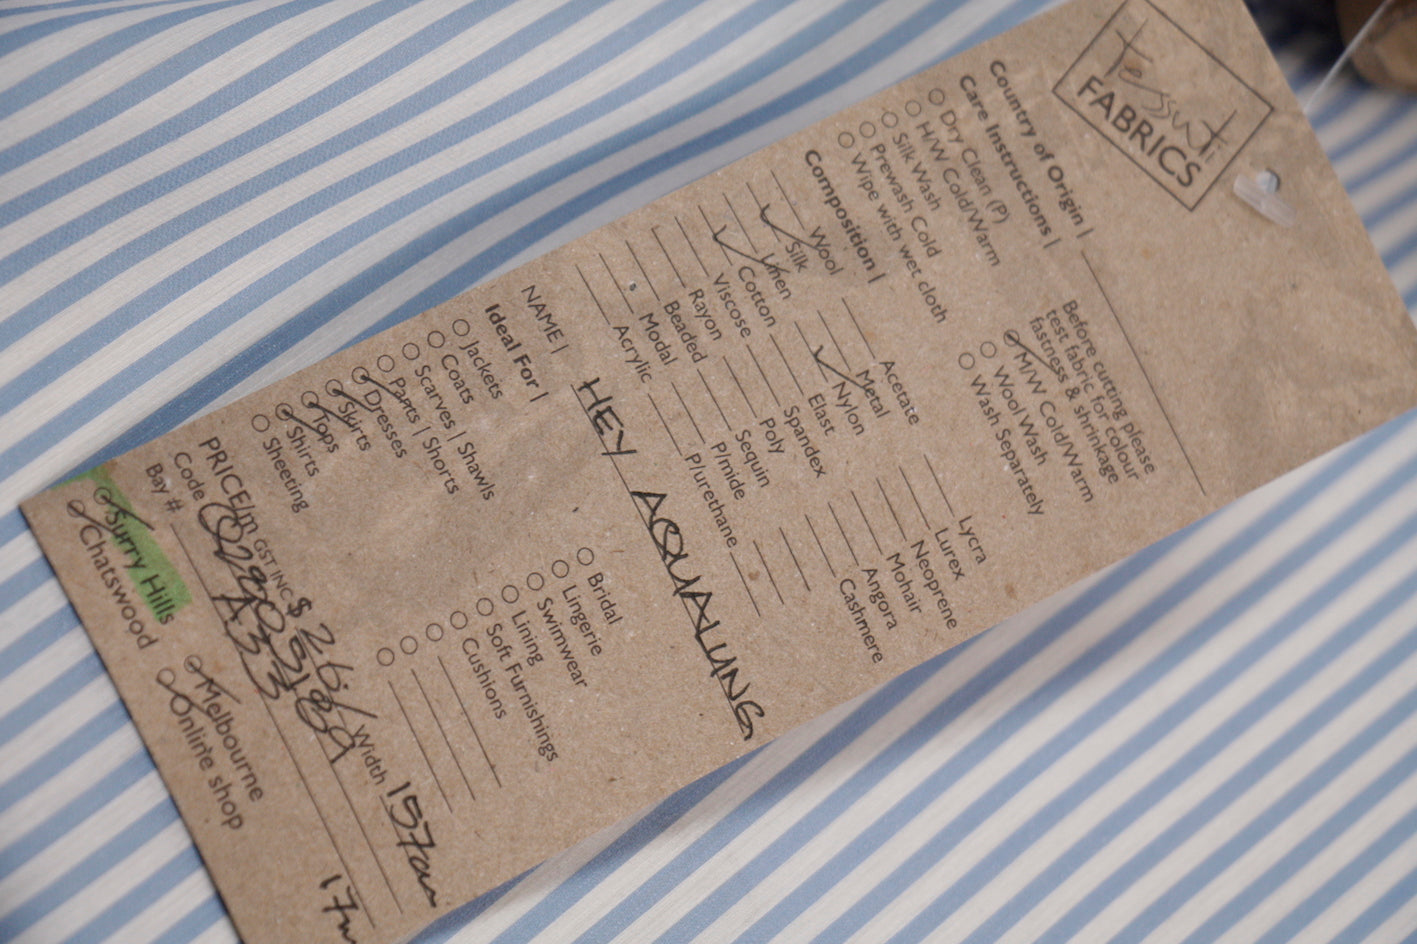 tessuti
FABRICS
Country of Origin |
Care Instructions |
Dry Clean (P)
H/W Cold/Warm
Silk Wash
Prewash Cold
Wipe with wet cloth
Before cutting please
test fabric for colour
fastness & shrinkage
M/W Cold/Warm
Wool Wash
Wash Separately
Composition |
Wool
Silk
Linen
Cotton
Viscose
Rayon
Beaded
Modal
Acrylic
Acetate
Metal
Nylon
Elast
Spandex
Poly
Sequin
P/mide
P/urethane
Lycra
Lurex
Neoprene
Mohair
Angora
Cashmere
NAME | HEY AQUALUNG
Ideal For |
Jackets
Coats
Scarves | Shawls
Pants | Shorts
Dresses
Skirts
Tops
Shirts
Sheeting
Bridal
Lingerie
Swimwear
Lining
Soft Furnishings
Cushions
PRICE/m GST INC $ 26/ Width 157cm
Code
Bay # A33 17m
Surry Hills
Chatswood
Melbourne
Online shop